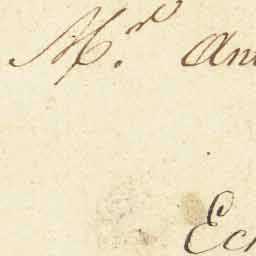 Mr. An
Ec